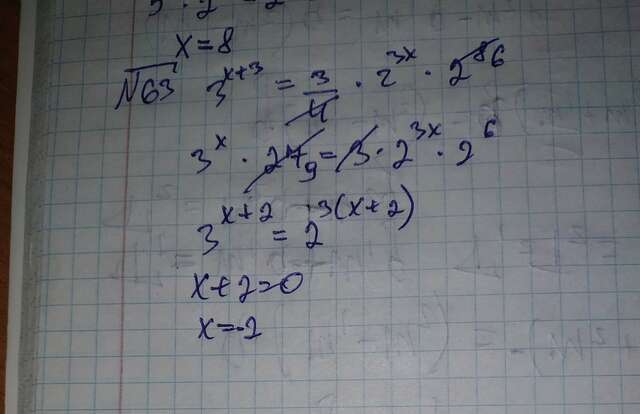 x = 8
№63 3^{x+3} = 3/4 · 2^{3x} · 2^{8} 6
3^{x} · 27 9 = 3 · 2^{3x} · 2^{6}
3^{x+2} = 2^{3(x+2)}
x+2=0
x=-2